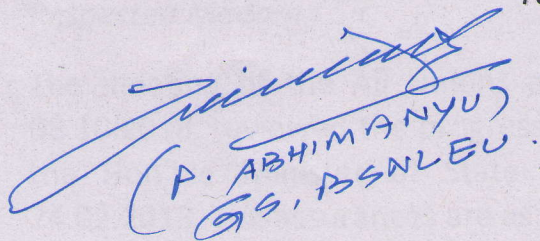 (P. ABHIMANYU)
GS, BSNLEU.